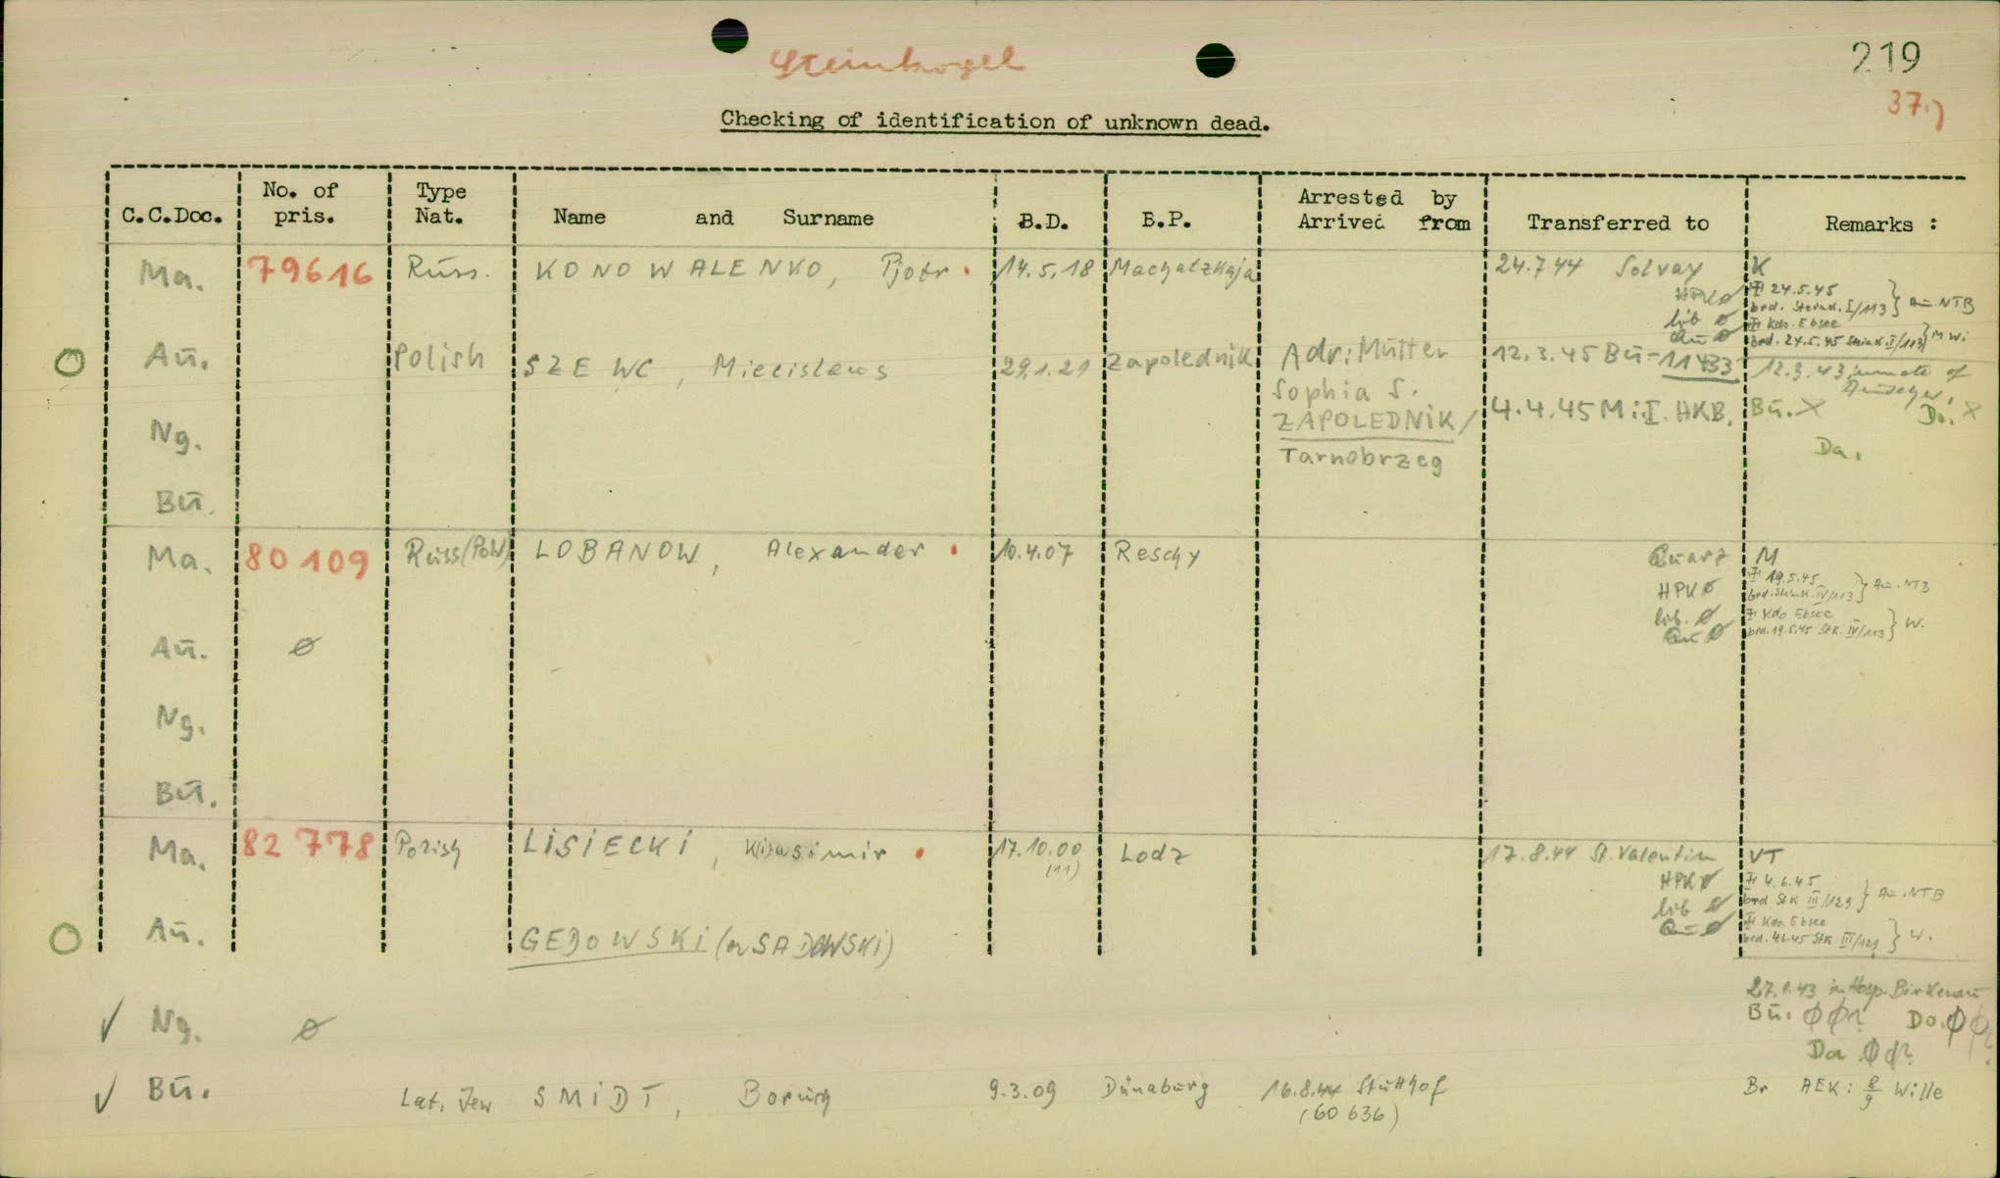 Steinkogel
219
37.)
Checking of identification of unknown dead.
C.C.Doc. No. of pris. Type Nat. Name and Surname B.D. B.P. Arrested by Arrived from Transferred to Remarks :
Ma. 79616 Russ. KONOWALENKO, Pjotr. 14.5.18 Machatzkaja 24.7.44 Solvay K
HPK ø 24.5.45
lib ø brd. Steink. I/113 } Au. NTB
Kdo. Ebsee
Qu ø brd. 24.5.45 Steink. I/113 }
Aū. Polish SZEWC, Miecislaus 29.1.21 Zapolednik Adr: Mutter 12.3.45 Bū-11433 12.3.43 inmate of
Sophia S.
ZAPOLEDNIK/ 4.4.45 M: I. HKB. Bū. X Do. X
Ng. Tarnobrzeg Da.
Bū.
Ma. 80109 Russ (PoW) LOBANOW, Alexander 10.4.07 Reschy Quarz M
HPK ø 19.5.45
brd. Steink. IV/113 } Au. NTB
lib. ø Kdo Ebsee
Qu ø brd. 19.5.45 Stk. IV/113 } W.
Aū. ø
Ng.
Bū.
Ma. 82778 Polish LISIECKI, K(i)asimir 17.10.00 (11) Lodz 17.8.44 St. Valentin VT
HPK ø 4.6.45
lib ø brd Stk III/129 } Au. NTB
Kdo. Ebsee
Qu ø brd. 4.6.45 Stk III/129 } W.
Aū. GEDOWSKI (or SADOWSKI)
27.1.43 in Hosp. Birkenau
Ng. ø Bū. øø? Do. øø?
Da øø?
Bū. Lat. Jew SMIDT, Boruch 9.3.09 Dünaburg 16.8.44 Stutthof Br AEK: Wille
(60 636)